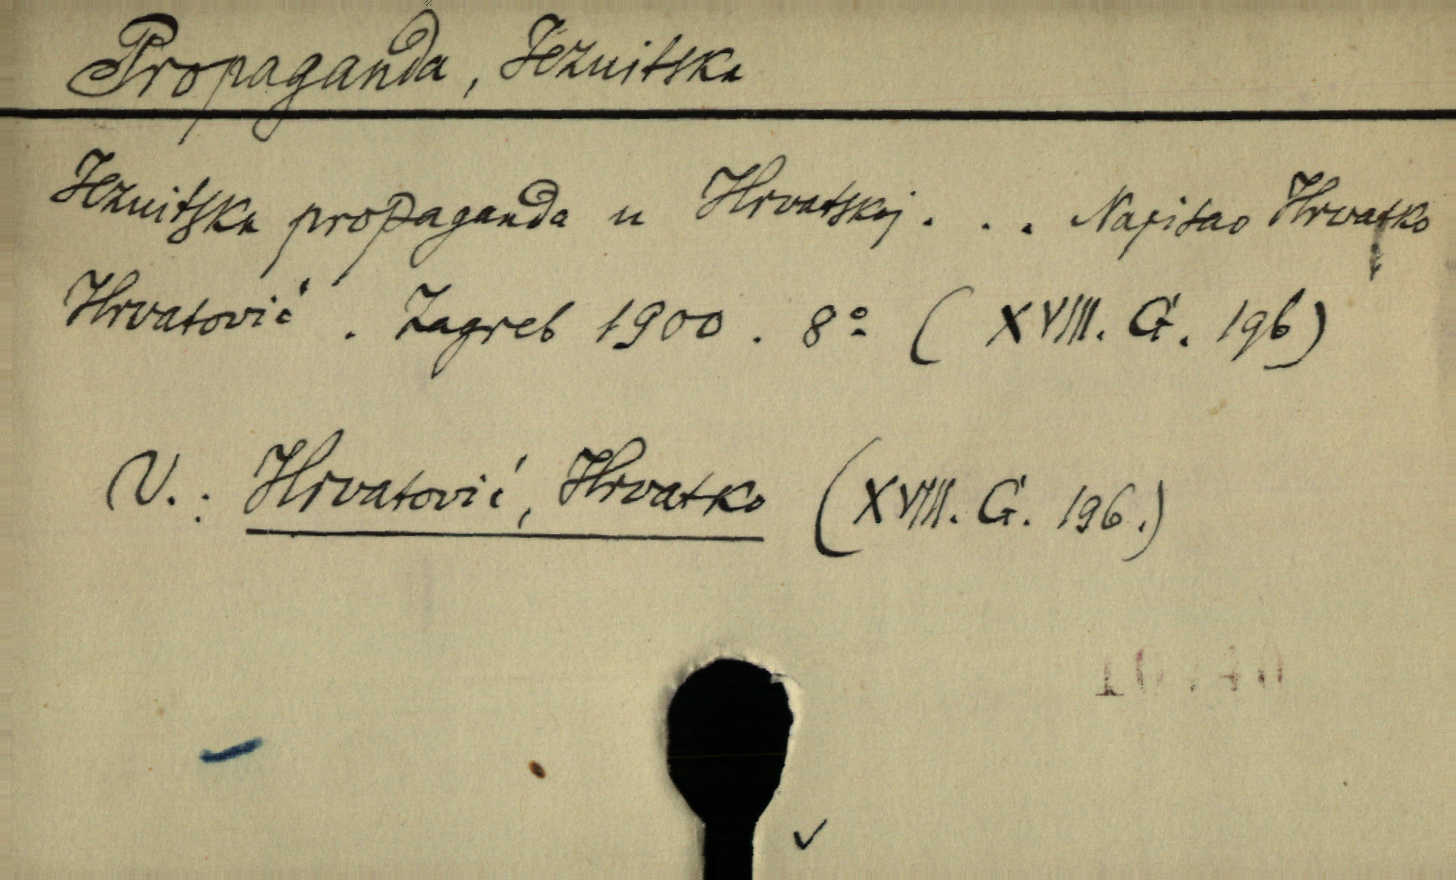 Propaganda, Jezuitska
Jezuitska propaganda u Hrvatskoj. . . Napisao Hrvatko
Hrvatović. Zagreb 1900. 8º (XVIII. G. 196)
V.: Hrvatović, Hrvatko (XVIII. G. 196.)